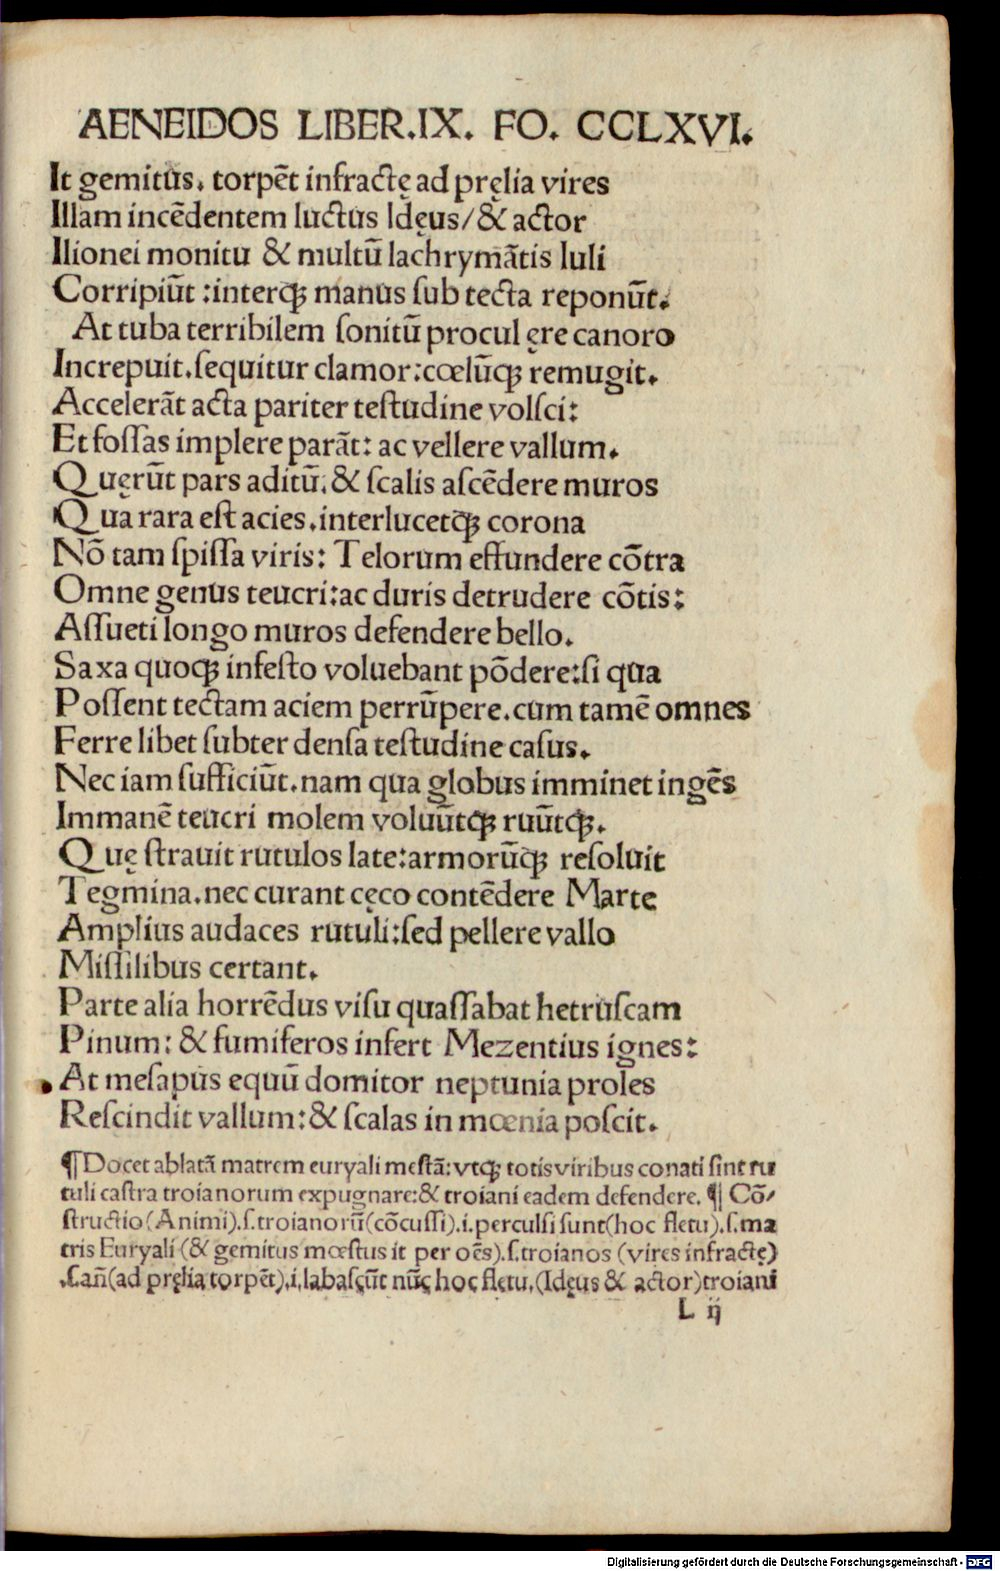 AENEIDOS LIBER.IX. FO. CCLXVI.
It gemitus. torpēt infractę ad pręlia vires
Illam incēdentem luctus Idęus/& actor
Ilionei monitu & multū lachrymātis Iuli
Corripiūt :interqꝫ manus ſub tecta reponūt.
At tuba terribilem ſonitū procul ęre canoro
Increpuit.ſequitur clamor:cœlūqꝫ remugit.
Accelerāt acta pariter teſtudine volſci:
Et foſſas implere parāt: ac vellere vallum.
Quęrūt pars aditū.& ſcalis aſcēdere muros
Qua rara eſt acies.interlucetqꝫ corona
Nō tam ſpiſſa viris: Telorum effundere cōtra
Omne genus teucri:ac duris detrudere cōtis:
Aſſueti longo muros defendere bello.
Saxa quoqꝫ infeſto voluebant pōdere:ſi qua
Poſſent tectam aciem perrūpere.cum tamē omnes
Ferre libet ſubter denſa teſtudine caſus.
Nec iam ſufficiūt.nam qua globus imminet ingēs
Immanē teucri molem voluūtqꝫ ruūtqꝫ.
Quę ſtrauit rutulos late:armorūqꝫ reſoluit
Tegmina.nec curant cęco contēdere Marte
Amplius audaces rutuli:ſed pellere vallo
Miſſilibus certant.
Parte alia horrēdus viſu quaſſabat hetruſcam
Pinum: & fumiferos infert Mezentius ignes:
At meſapus equū domitor neptunia proles
Reſcindit vallum:& ſcalas in mœnia poſcit.
¶Docet ablatā matrem euryali meſtā:vtqꝫ totis viribus conati ſint ru
tuli caſtra troianorum expugnare:& troiani eadem defendere. ¶ Cō/
ſtructio(Animi).ſ.troianorū(cōcuſſi).i.perculſi ſunt(hoc fletu).ſ.ma
tris Euryali (& gemitus mœſtus it per oēs).ſ.troianos (vires infractę)
.ſ.añ(ad pręlia torpēt).i.labaſcūt nūc hoc fletu.(Idęus & actor)troiani
L ij
Digitalisierung gefördert durch die Deutsche Forschungsgemeinschaft - DFG